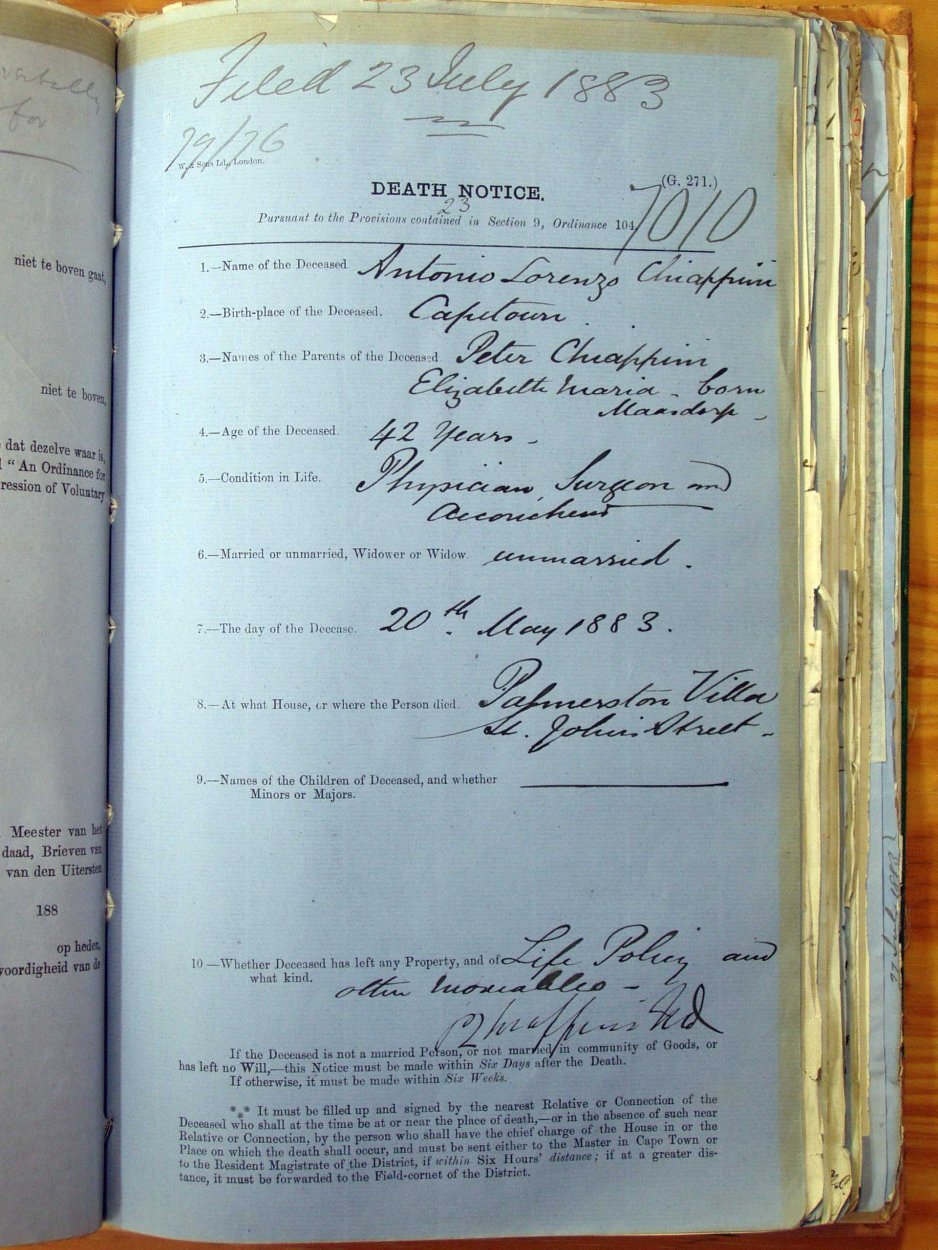 verbally
for
niet te boven gaat,
niet te boven,
dat dezelve waar is,
"An Ordinance for
ression of Voluntary
Meester van het
daad, Brieven van
van den Uitersten
188
op heden,
voordigheid van de
Filed 23 July 1883
79/76
W. & Sons Ld., London.
(G. 271.)
DEATH NOTICE.
7010
23
Pursuant to the Provisions contained in Section 9, Ordinance 104,
1.—Name of the Deceased Antonio Lorenzo Chiappini
2.—Birth-place of the Deceased. Capetown
3.—Names of the Parents of the Deceased Peter Chiappini
Elizabeth Maria - born
Maasdorp -
4.—Age of the Deceased. 42 Years -
5.—Condition in Life. Physician, Surgeon and
Accoucheur
6.—Married or unmarried, Widower or Widow. unmarried.
7.—The day of the Decease. 20th. May 1883.
8.—At what House, or where the Person died. Palmerston Villa
St. John's Street -
9.—Names of the Children of Deceased, and whether
Minors or Majors.
10.—Whether Deceased has left any Property, and of Life Policy and
what kind. other moveables -
Chiappini
If the Deceased is not a married Person, or not married in community of Goods, or
has left no Will,—this Notice must be made within Six Days after the Death.
If otherwise, it must be made within Six Weeks.
*** It must be filled up and signed by the nearest Relative or Connection of the
Deceased who shall at the time be at or near the place of death,—or in the absence of such near
Relative or Connection, by the person who shall have the chief charge of the House in or the
Place on which the death shall occur, and must be sent either to the Master in Cape Town or
to the Resident Magistrate of the District, if within Six Hours' distance; if at a greater dis-
tance, it must be forwarded to the Field-cornet of the District.